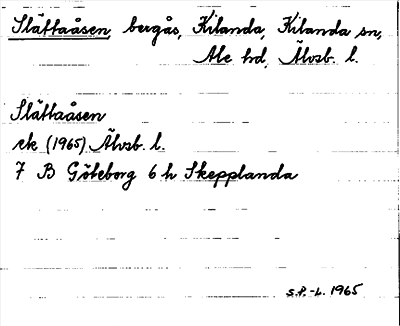 Slättaåsen, bergås, Kilanda, Kilanda sn,
Ale hd, Älvsb. l.
Slättaåsen
ek (1965) Älvsb. l.
7 B Göteborg 6 h Skepplanda
S.P.-L. 1965